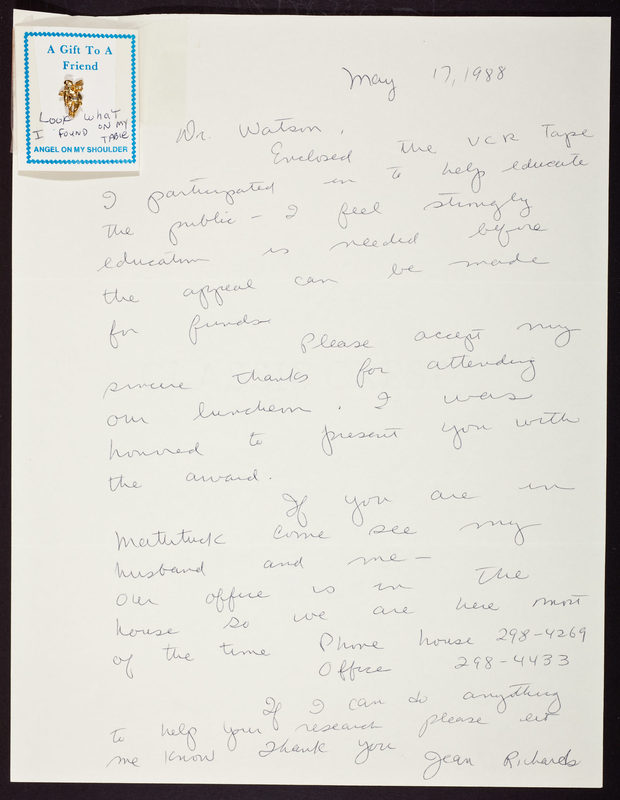 A Gift To A
Friend
LOOK WHAT
I FOUND ON MY
TABLE
ANGEL ON MY SHOULDER
May 17, 1988
Dr. Watson,
Enclosed the VCR Tape
I participated in to help educate
the public - I feel strongly
education is needed before
the appeal can be made
for funds
Please accept my
sincere thanks for attending
our luncheon. I was
honored to present you with
the award.
If you are in
Mattituck come see my
husband and me -
our office is in the
house so we are here most
of the time Phone house 298-4269
Office 298-4433
If I can do anything
to help your research please let
me know Thank you
Jean Richards